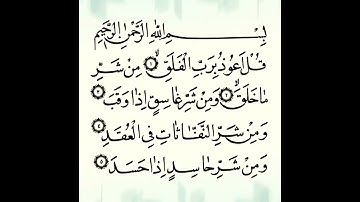 بِسْمِ اللهِ الرَّحْمٰنِ الرَّحِيْمِ
قُلْ اَعُوْذُ بِرَبِّ الْفَلَقِۙ۝۱ مِنْ شَرِّ
مَا خَلَقَۙ۝۲ وَمِنْ شَرِّ غَاسِقٍ اِذَا وَقَبَۙ۝۳
وَمِنْ شَرِّ النَّفّٰثٰتِ فِى الْعُقَدِۙ۝۴
وَمِنْ شَرِّ حَاسِدٍ اِذَا حَسَدَ۝۵